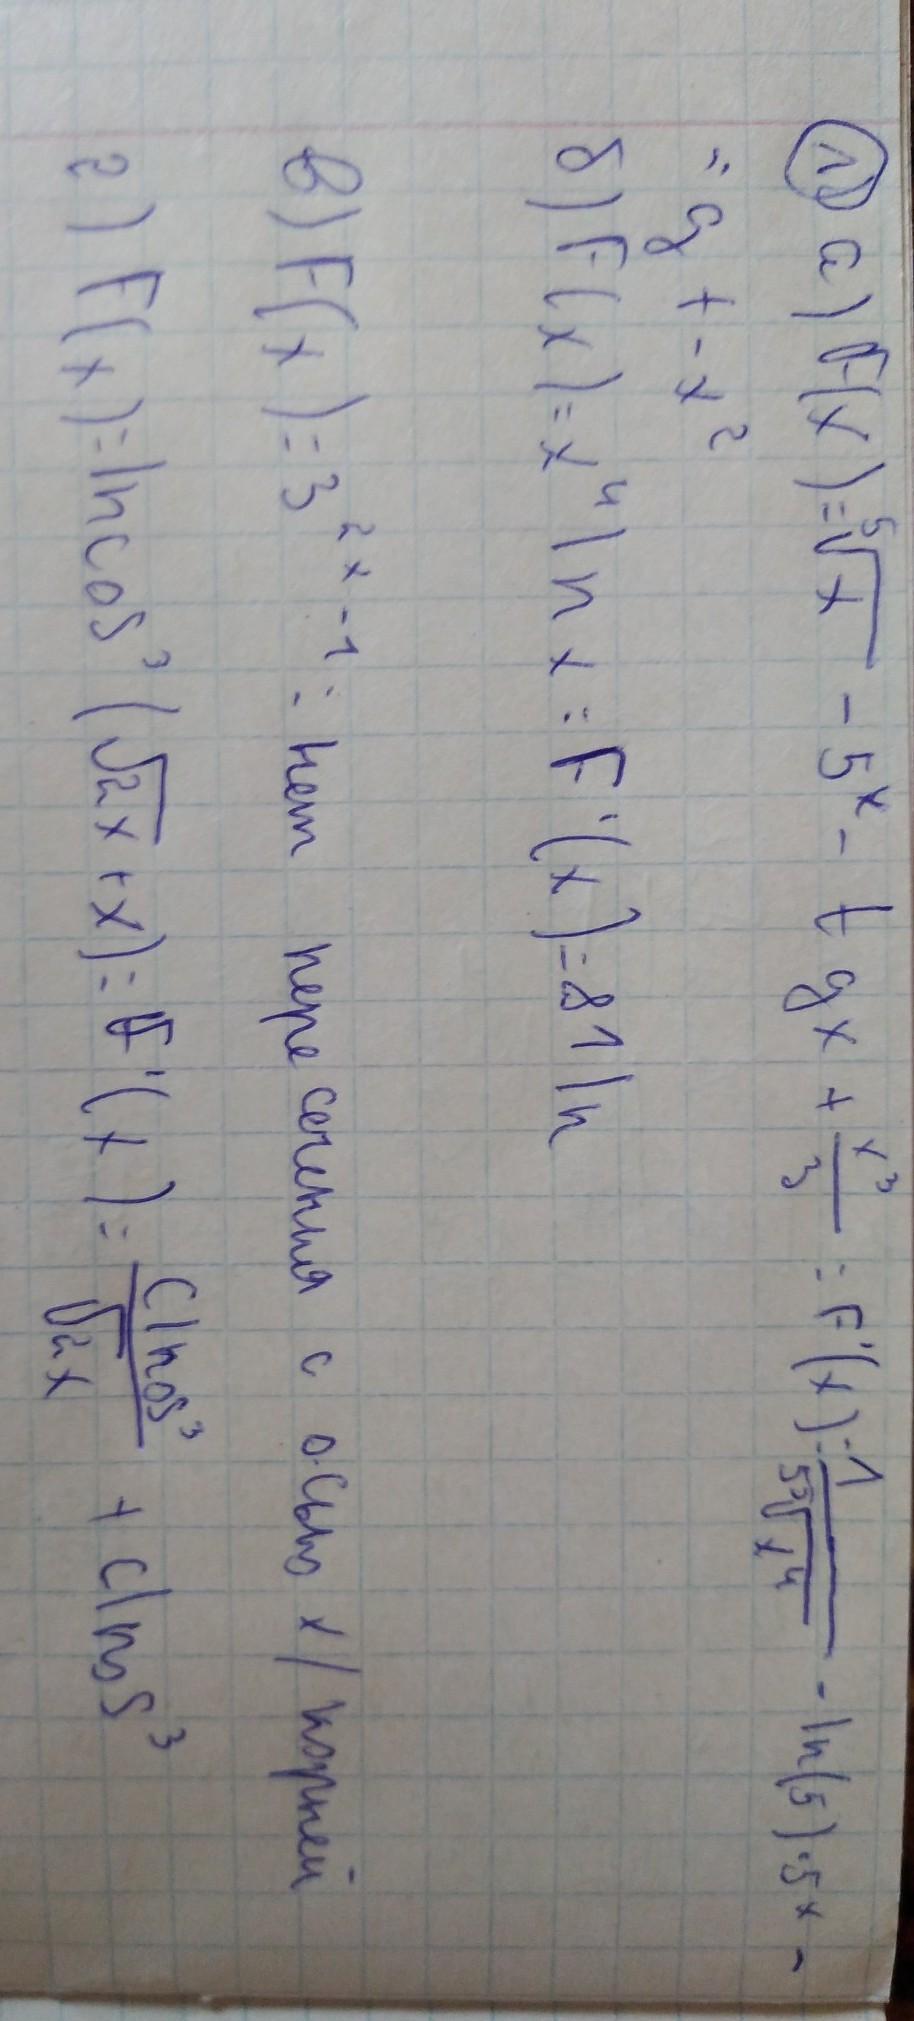 1) а) F(x)=⁵√x - 5ˣ - tgx + x³/3 = F'(x) = 1/(5⁵√x⁴) - ln(5)·5x -
= gt - x²
б) F(x)=x⁴ln x = F'(x)=81ln
в) F(x)=3²ˣ⁻¹ = нет пересечения с осью x/корней
г) F(x)=lncos³(√2x+x)=F'(x)=Clnos³/√2x + Clnos³